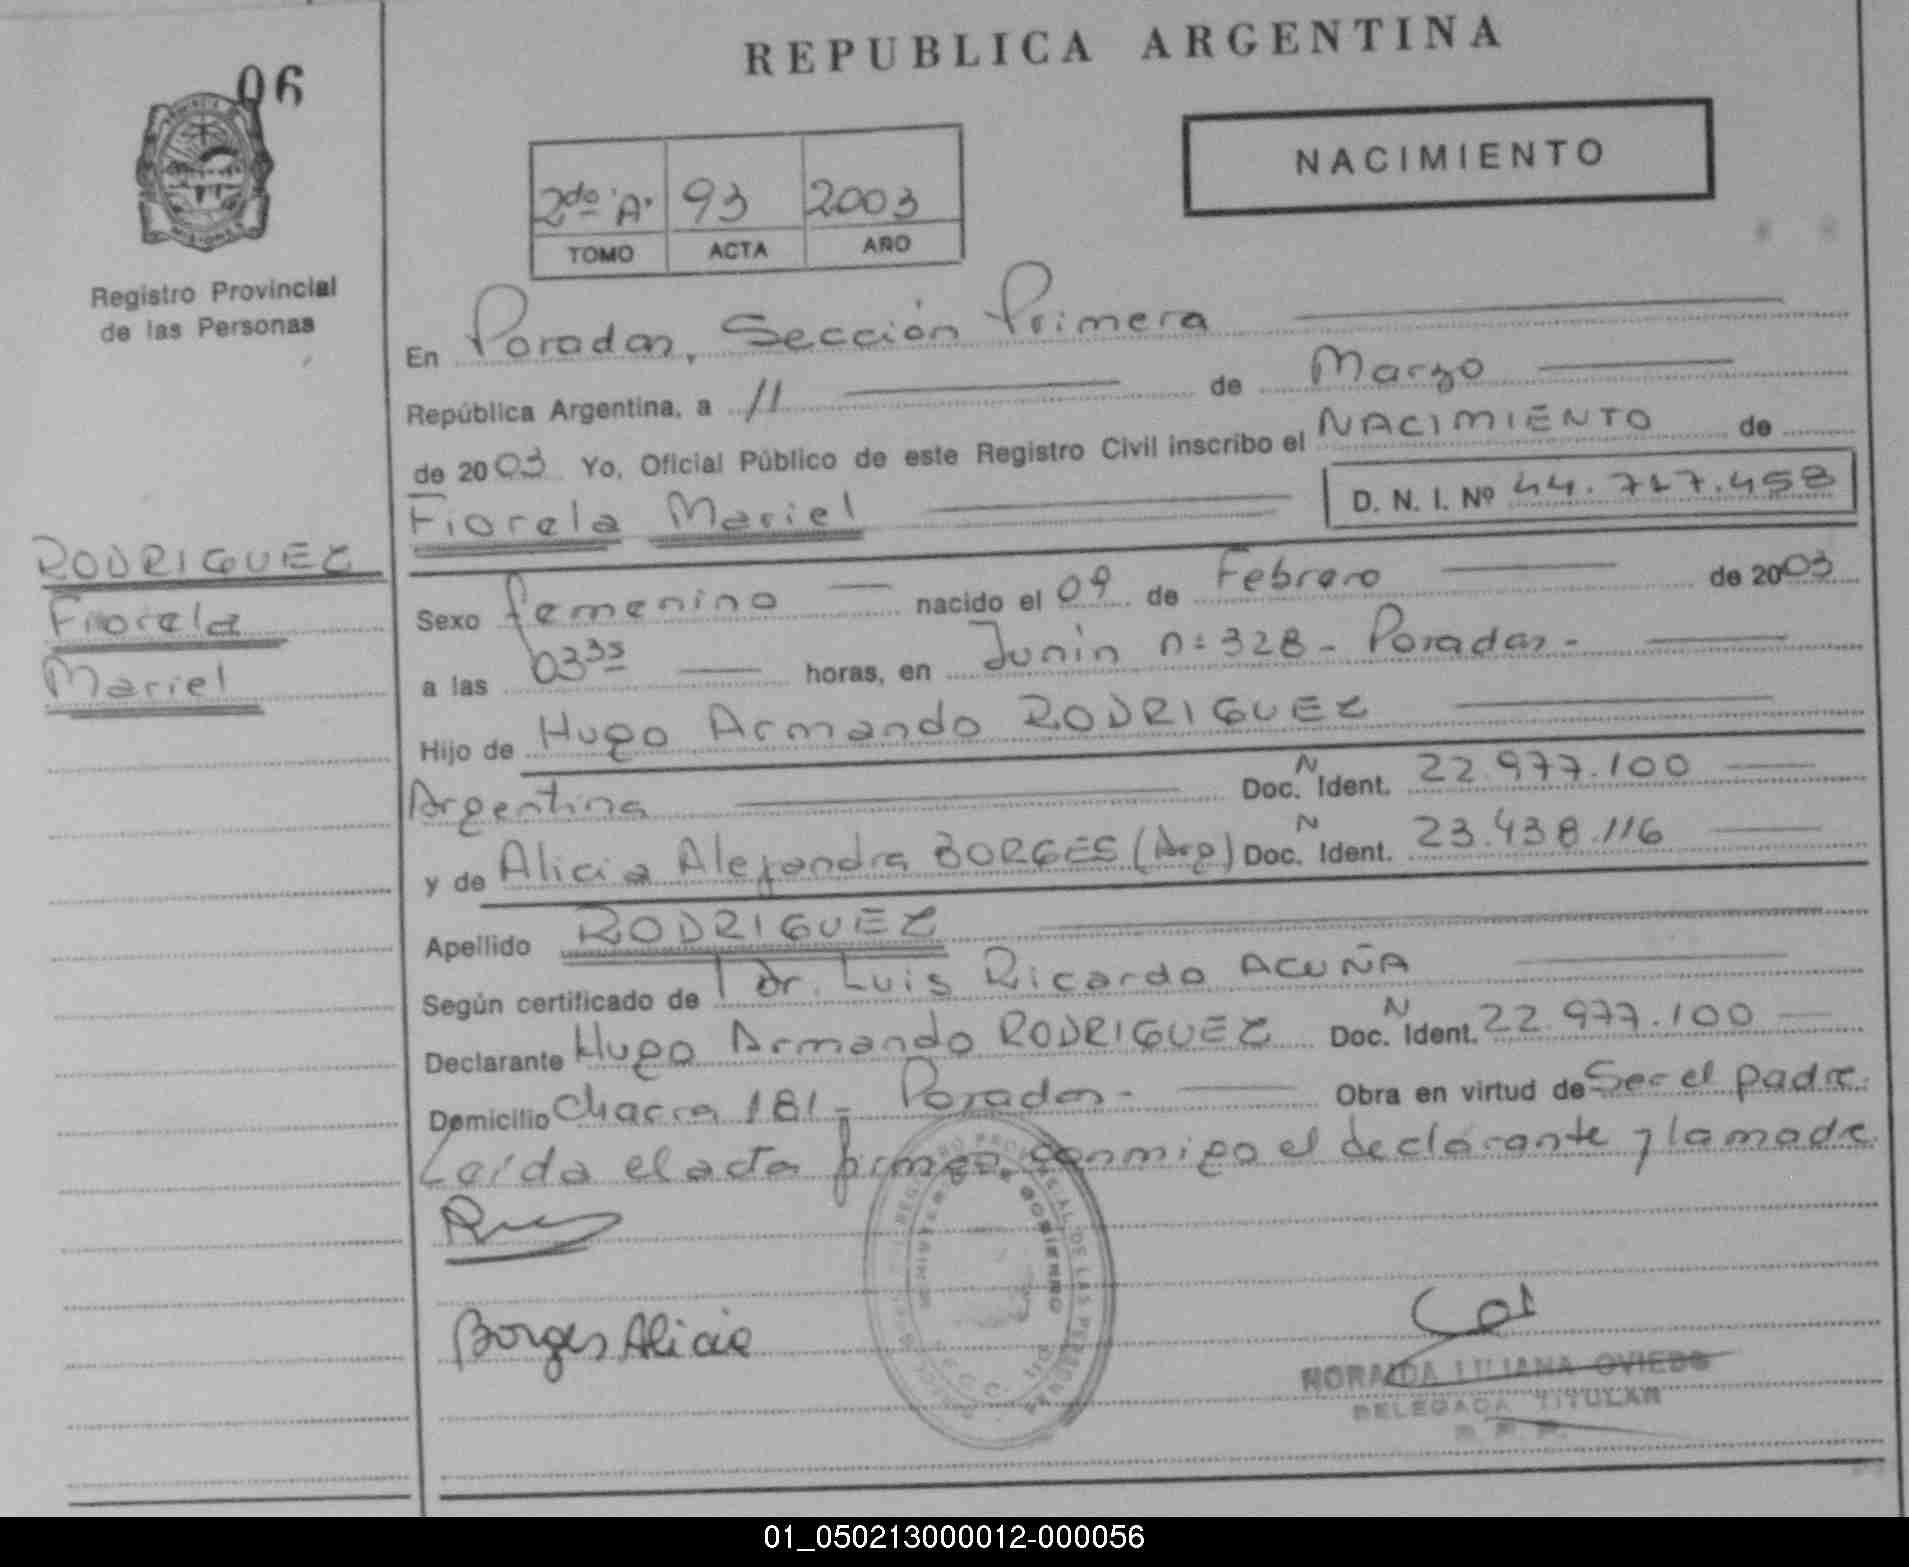 REPUBLICA ARGENTINA
06
NACIMIENTO
2do "A" 93 2003
TOMO ACTA AÑO
Registro Provincial
de las Personas
En Posadas, Sección Primera
República Argentina, a 11 de Marzo
de 2003 Yo, Oficial Público de este Registro Civil inscribo el NACIMIENTO de
Fiorela Mariel D. N. I. Nº 44.717.458
RODRIGUEZ
Fiorela
Mariel
Sexo femenino nacido el 09 de Febrero de 2003
a las 03 35 horas, en Junín n= 328 - Posadas -
Hijo de Hugo Armando RODRIGUEZ
Argentina Doc. N Ident. 22.977.100
y de Alicia Alejandra BORGES (Arg) Doc. N Ident. 23.438.116
Apellido RODRIGUEZ
Según certificado de Dr. Luis Ricardo ACUÑA
Declarante Hugo Armando RODRIGUEZ Doc. N Ident. 22.977.100
Domicilio Chacra 181 - Posadas - Obra en virtud de Ser el padre.
Leída el acta firman conmigo el declarante y la madre.
REGISTRO PROVINCIAL DE LAS PERSONAS
MINISTERIO DE GOBIERNO
Borges Alicia
NORAIDA LILIANA OVIEDO
DELEGADA TITULAR
R. P. P.
01_050213000012-000056